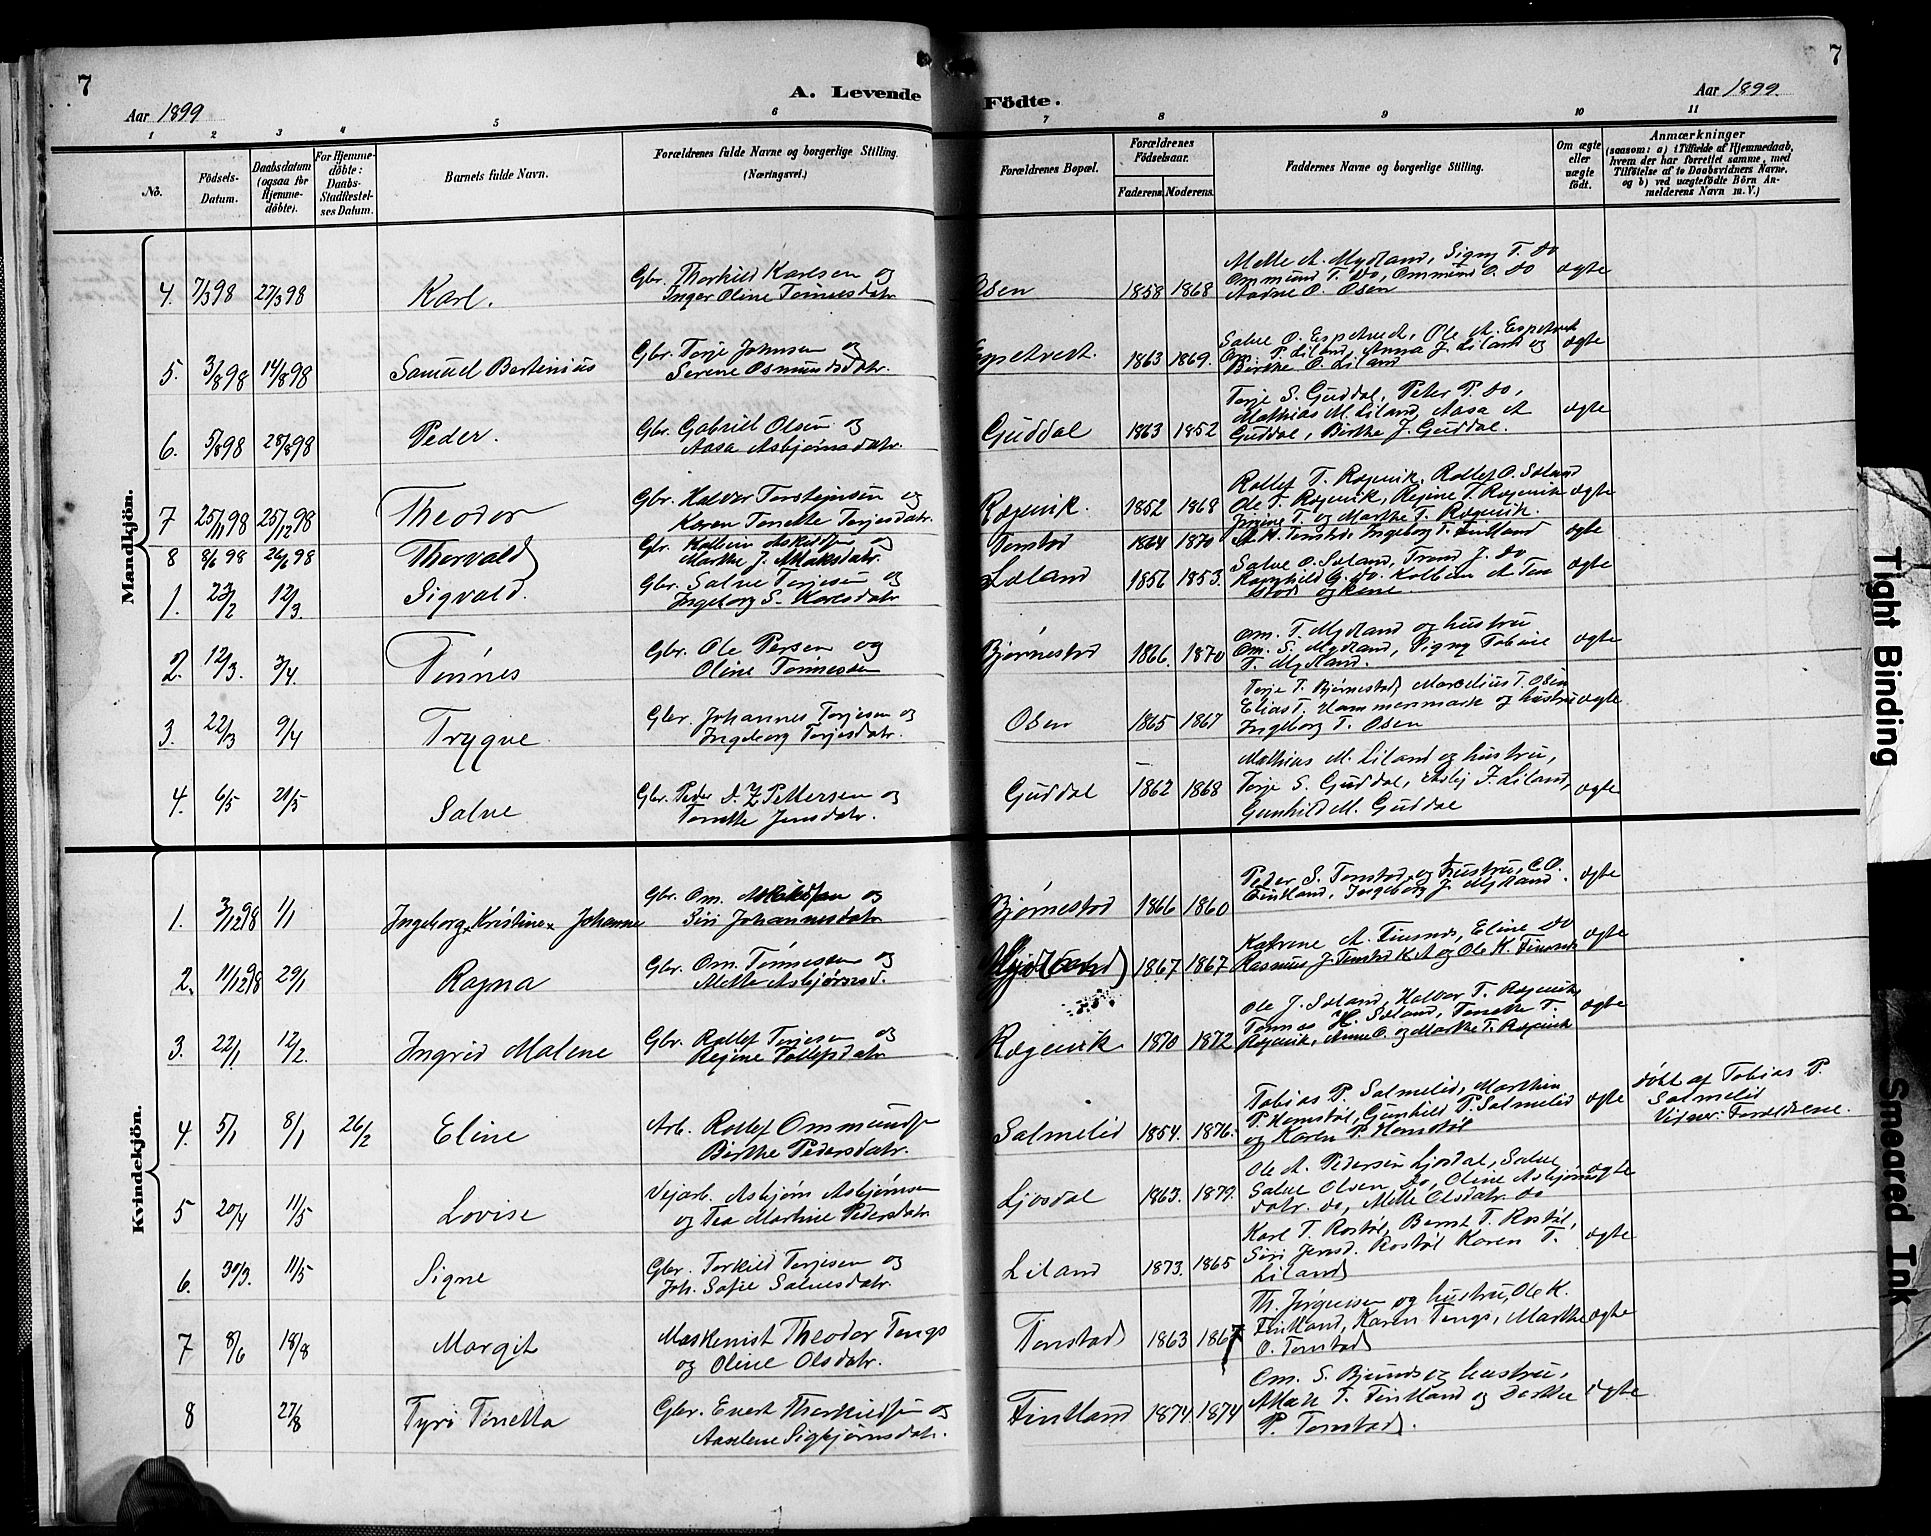 7
7
A. Levende Födte.
Aar 1899
Aar 1899.
1 2 3 4 5 6 7 8 9 10 11
No.
Födsels-Datum.
Daabsdatum (ogsaa for Hjemme-döbte).
For Hjemme-döbte: Daabs-Stadfestel-ses Datum.
Barnets fulde Navn.
Forældrenes fulde Navne og borgerlige Stilling. (Næringsvei.)
Forældrenes Bopæl.
Forældrenes Födselsaar.
Faderens. Moderens.
Faddernes Navne og borgerlige Stilling.
Om ægte eller uægte födt.
Anmærkninger
(saasom: a) i Tilfælde af Hjemmedaab, hvem der har forrettet samme, med Tilföielse af to Daabsvidners Navne, og b) ved uægtefödte Börn Anmelderens Navn m. V.)
Mandkjön.
4. 7/3 98 27/3 98 Karl. Gbr. Thorkild Karlsen og Inger Oline Tønnesdatr. Osen 1858 1868 Mette A. Mydland, Signy T. do Ommund T. do, Ommund O. do Aadne O. Osen ægte
5. 3/8 98 14/8 98 Samuel Bertinius Gbr. Torje Johnsen og Serene Osmundsdatr. Espetvest. 1863 1869. Salve O. Espetvedt, Ole A. Espetvedt Om. P. Liland, Anna J. Liland og Birthe O. Liland ægte
6. 5/8 98 28/8 98 Peder. Gbr. Gabriel Olsen og Aasa Asbjørnsdatr. Guddal 1863 1852 Torje S. Guddal, Peter P. do, Mathias M. Liland, Aasa A Guddal, Birthe J. Guddal. ægte
7 25/11 98 25/12 98 Theodor Gbr. Halvor Torstensen og Karen Tonette Torjesdatr. Rægevik. 1852 1868 Rollef T. Rægevik, Rollef O. Søland Ole T. Rægevik, Regine T. Rægevik T. og Marthe T. Rægevik. ægte
8 8/6 98 26/6 98 Thorvald Gbr. Kolbein Askildsen og Marthe J. Tonstad 1864 1870 A. K. Tonstad, Ingeborg T. Fintland ægte
1. 23/2 12/3. Sigvald. Gbr. Salve Torjesen og Ingeborg S. Karlsdatr Løland 1856 1853. Salve O. Søland, Trond J. do Ragnhild G. do. Kolbein A Tonstad og kone. ægte
2. 12/3. 3/4. Tønnes Gbr. Ole Persen og Oline Tønnesen Bjørnestad 1866. 1870 Om. T. Mydland og hustru Om. S. Mydland, Signy Tobine T. Mydland. ægte
3. 22/3 9/4 Trygve Gbr. Johannes Torjesen og Ingeborg Torjesdatr. Osen 1865 1867 Torje T. Bjørnestad, Marselius T. Osen Elias T. Hammermark og hustru Ingeborg T. Osen ægte
4. 6/5 21/5 Salve Gbr. Peder Pettersen og Tonette Jensdatr. Guddal 1862 1868 Mathias M. Liland og hustru, Torje S. Guddal, Aslej J. Liland, Gunhild M. Guddal ægte
Kvindekjön.
1. 3/12 98 1/1 Ingeborg Kristine Johanne Gbr. Om. Askildsen og Siri Johannesdatr Bjørnestad 1866 1860 Peder S. Tonstad og hustru, C. O. Fintland, Ingeborg J. Mydland. ægte
2. 11/12 98 29/1 Ragna Gbr. Om. Tønnesen og Mette Asbjørnsd. 1867 1867 Katrene A. Finsnes, Eline do Rasmus J. Tonstad og Ole K. Finsnes ægte
3. 22/1 12/2. Ingrid Malene Gbr. Rollef Torjesen og Regine Tollefsdatr Rægevik 1870 1872 Ole J. Søland, Halvor T. Rægevik Tønnes H. Søland, Tonette T. Rægevik, Anne O. og Marthe T. Rægevik ægte
4. 5/1 8/1 26/2 Eline Arb. Rollef Ommundsen Birthe Pedersdatr. Salmelid 1854. 1876. Tobias P. Salmelid, Marthin P. Homstøl, Gunhild P. Salmelid og Karen P. Homstøl ægte døbt af Tobias P. Salmelid Vidner: Forældrene.
5 20/4 11/5 Lovise Vejarb. Asbjørn Asbjørnsen og Tea Martine Pedersdatr. Ljosdal 1863. 1872. Ole A. Pedersen Ljosdal, Salve Salve Olsen do, Oline Asbjørnsdatr. do, Mette Olsdatr. do ægte
6. 30/3. 11/5 Signe Gbr. Torkild Torjesen og Joh. Sofie Salvesdatr. Liland 1873. 1865 Karl T. Rostøl, Bernt T. Rostøl, Siri Jensd. Rostøl Karen T. Liland ægte
7 8/6 18/8 Margit Maskenist Theodor Tengs og Oline Olsdatr. Tonstad 1863 1867 Th. Jørgensen og hustru, Ole K. Fintland, Karen Tengs, Marthe O. Tonstad ægte
8 27/8 Tyri Tonetta Gbr. Evert Thorkildsen og Aaslene Sigbjørnsdatr. Fintland 1874. 1874 Om. S. Bjunes og hustru, T. Fintland og Dorthe P. Tonstad. ægte
Tight Binding
Smeared Ink